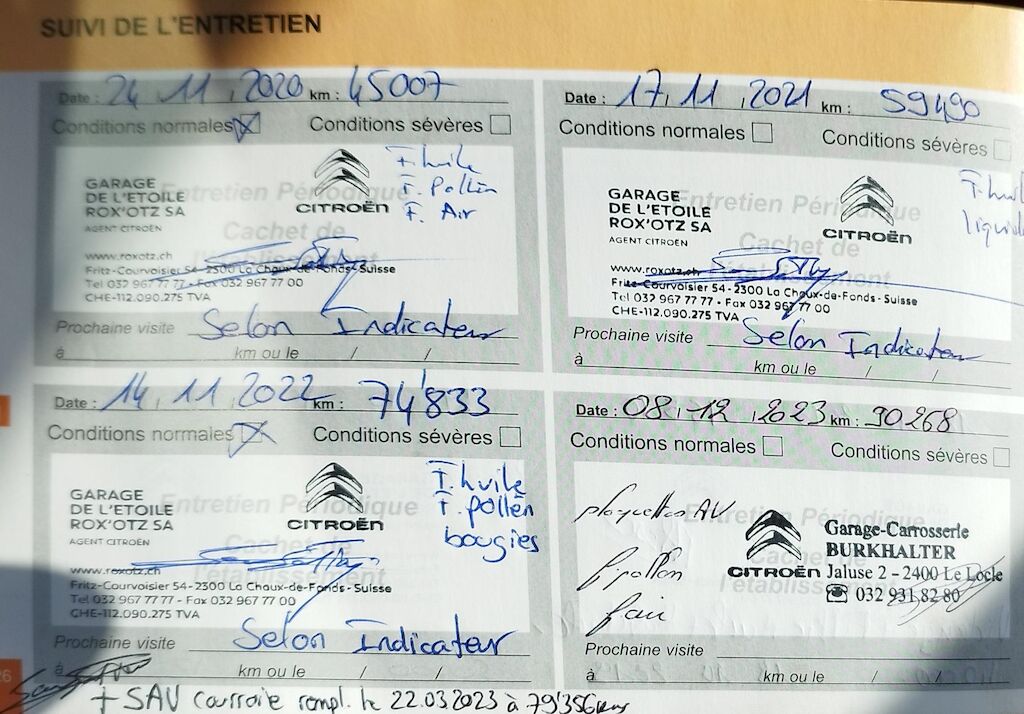 SUIVI DE L'ENTRETIEN
Date : 24 . 11 . 2020 km : 45007
Conditions normales Conditions sévères
Entretien Périodique
Cachet de
GARAGE
DE L'ETOILE
ROX'OTZ SA
AGENT CITROËN
CITROËN
F. huile
F. Pollen
F. Air
www.roxotz.ch
Fritz-Courvoisier 54 - 2300 La Chaux-de-Fonds - Suisse
Tel 032 967 77 77 - Fax 032 967 77 00
CHE-112.090.275 TVA
Prochaine visite Selon Indicateur
à km ou le / /
Date : 17 . 11 . 2021 km : 59490
Conditions normales Conditions sévères
Entretien Périodique
Cachet de
GARAGE
DE L'ETOILE
ROX'OTZ SA
AGENT CITROËN
CITROËN
www.roxotz.ch
Fritz-Courvoisier 54 - 2300 La Chaux-de-Fonds - Suisse
Tel 032 967 77 77 - Fax 032 967 77 00
CHE-112.090.275 TVA
Prochaine visite Selon Indicateur
à km ou le / /
Date : 14 . 11 . 2022 km : 74'833
Conditions normales Conditions sévères
Entretien Périodique
Cachet de
l'établissement
GARAGE
DE L'ETOILE
ROX'OTZ SA
AGENT CITROËN
CITROËN
F. huile
F. pollen
bougies
www.roxotz.ch
Fritz-Courvoisier 54 - 2300 La Chaux-de-Fonds - Suisse
Tel 032 967 77 77 - Fax 032 967 77 00
CHE-112.090.275 TVA
Prochaine visite Selon Indicateur
à km ou le / /
+ SAV courroie rempl. le 22.03.2023 à 79'356 km
Date : 08 . 12 . 2023 km : 90268
Conditions normales Conditions sévères
Entretien Périodique
Cachet de
l'établissement
plaquettes AV
f. pollen
f air
CITROËN
Garage-Carrosserie
BURKHALTER
Jaluse 2 - 2400 Le Locle
☎ 032 931 82 80
Prochaine visite
à km ou le / /